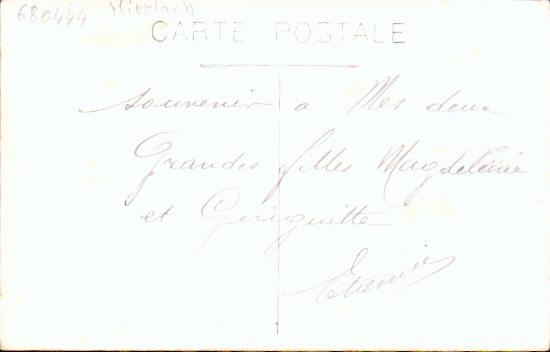 680444 Mittlach
CARTE POSTALE
souvenir a Mes deux
Grandes filles Magdeleine
et Guinguitte
Etienne